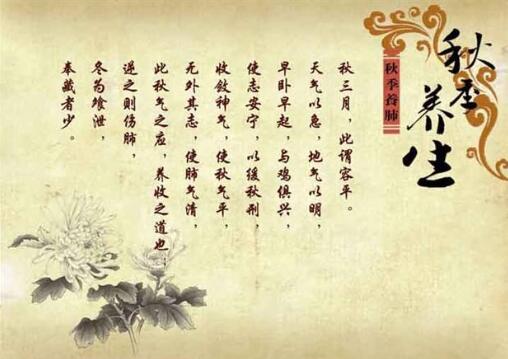 秋季养生
秋季養肺
秋三月，此谓容平。
天气以急，地气以明，
早卧早起，与鸡俱兴，
使志安宁，以缓秋刑，
收敛神气，使秋气平，
无外其志，使肺气清，
此秋气之应，养收之道也；
逆之则伤肺，
冬为飧泄，
奉藏者少。